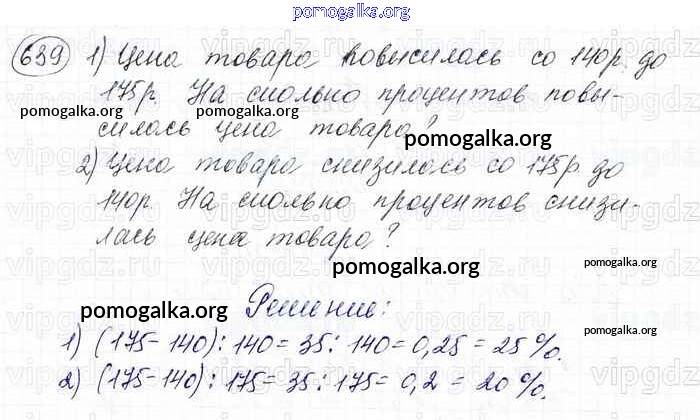 pomogalka.org
639) 1) Цена товара повысилась со 140р. до
175р. На сколько процентов повы-
pomogalka.org
pomogalka.org
силась цена товара?
pomogalka.org
2) Цена товара снизилась со 175р. до
140р. На сколько процентов снизи-
pomogalka.org
pomogalka.org
лась цена товара?
pomogalka.org
pomogalka.org
Решение:
pomogalka.org
1) (175-140): 140= 35: 140= 0,25 = 25 %.
2) (175-140): 175= 35: 175= 0,2 = 20 %.
pomogalka.org